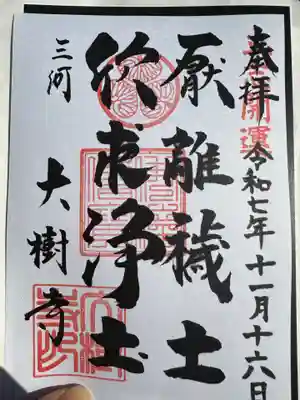 奉拝
開運
令和七年十一月十六日
厭離穢土
欣求浄土
三河
大樹寺